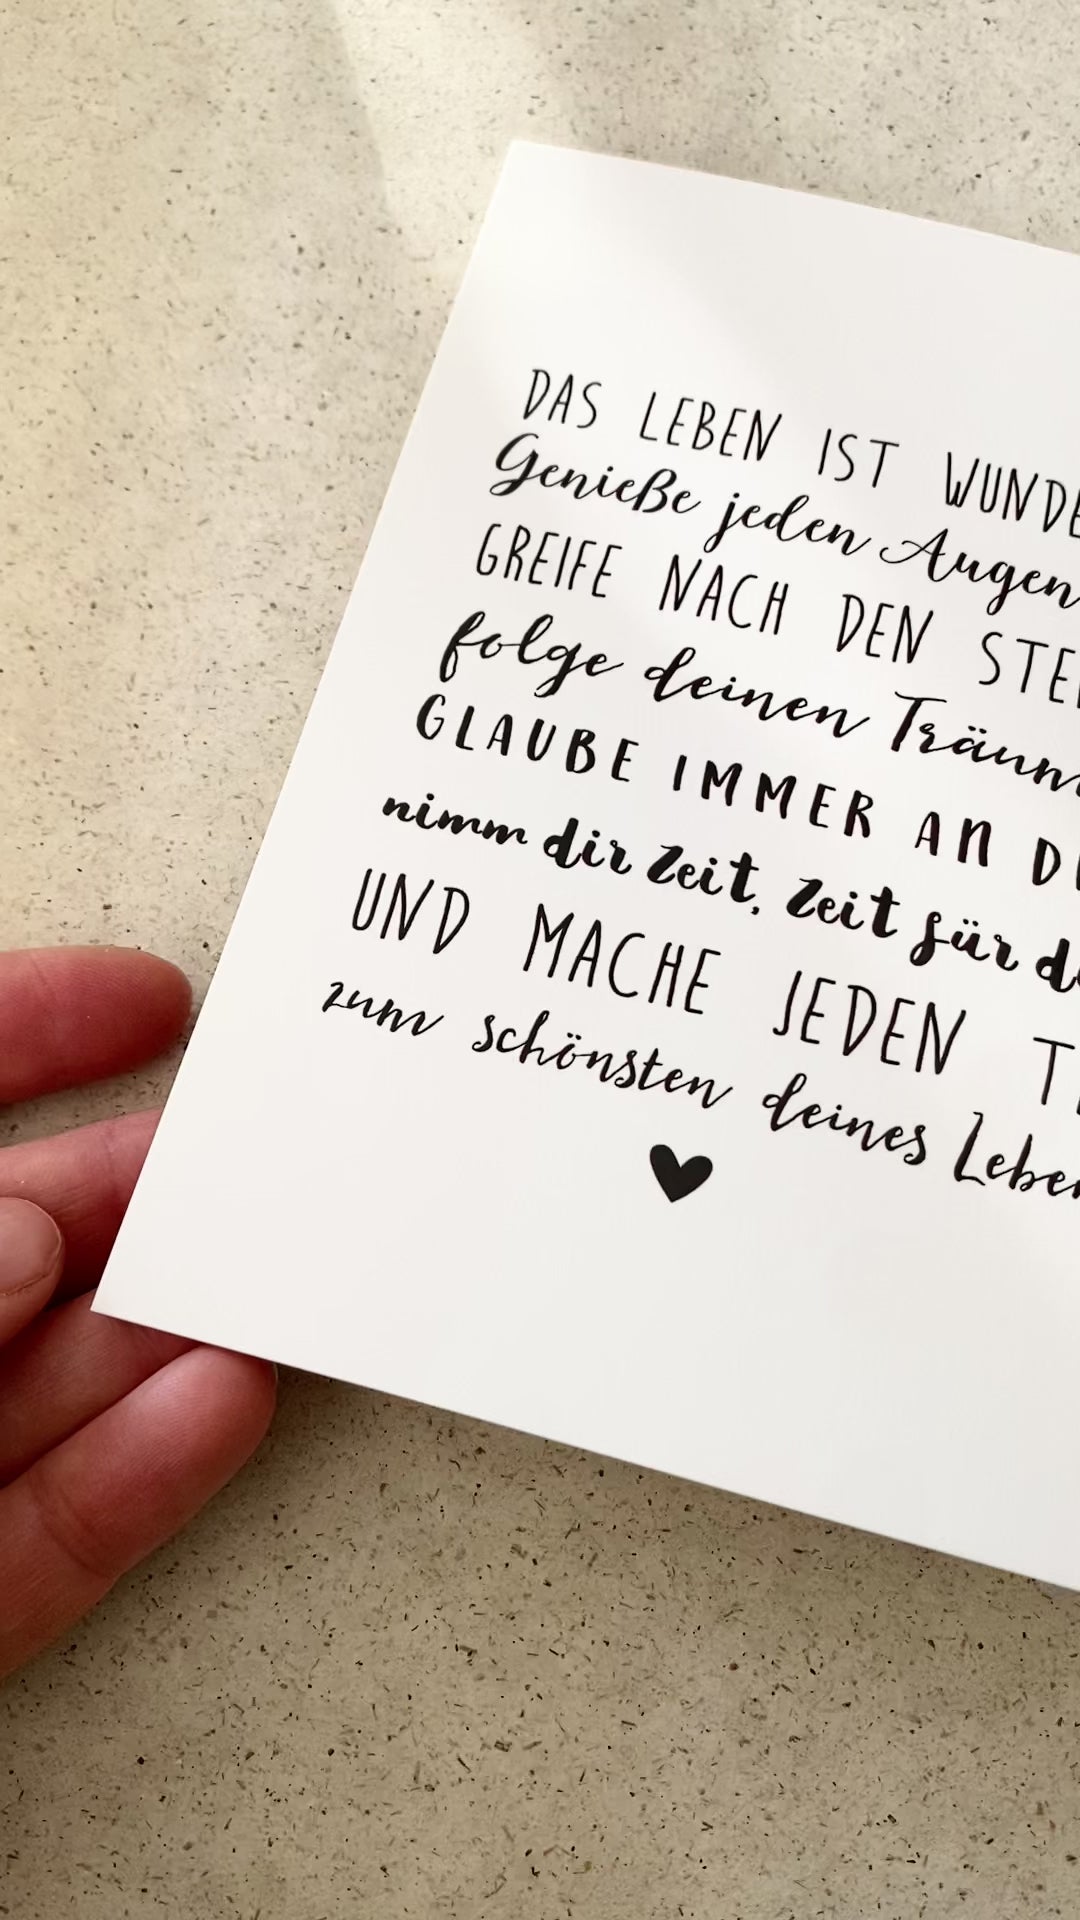 DAS LEBEN IST WUNDE
Genieße jeden Augen
GREIFE NACH DEN STE
folge deinen Träum
GLAUBE IMMER AN D
nimm dir Zeit, Zeit für d
UND MACHE JEDEN T
zum schönsten deines Leben